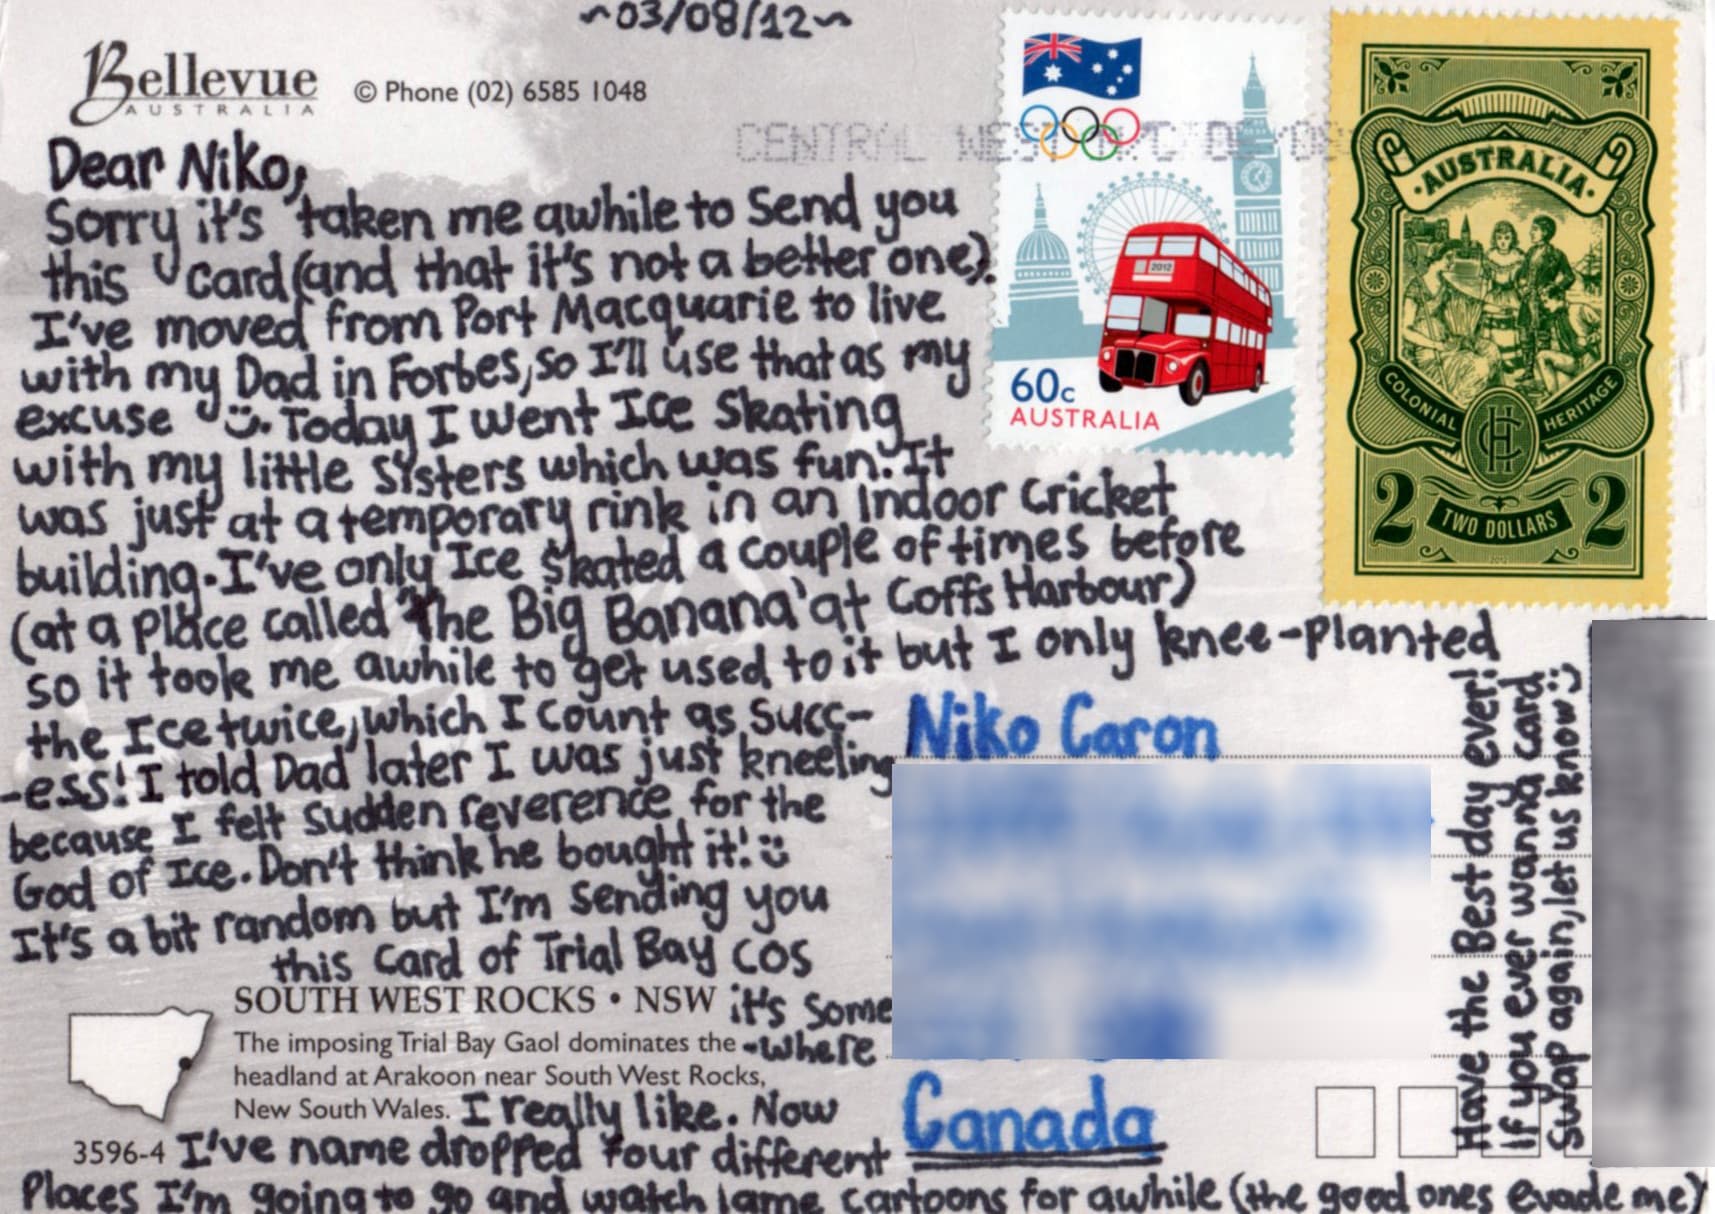 ~03/08/12~
Bellevue
AUSTRALIA
© Phone (02) 6585 1048
CENTRAL WEST
Dear Niko,
Sorry it's taken me awhile to Send you
this card (and that it's not a better one).
I've moved from Port Macquarie to live
with my Dad in Forbes, so I'll use that as my
excuse Ü. Today I went Ice Skating
with my little sisters which was fun. It
was just at a temporary rink in an Indoor Cricket
building. I've only Ice Skated a couple of times before
(at a place called 'The Big Banana' at Coffs Harbour)
so it took me awhile to get used to it but I only knee-planted
the Ice twice, which I count as succ-
-ess! I told Dad later I was just kneeling
because I felt sudden reverence for the
God of Ice. Don't think he bought it! Ü
It's a bit random but I'm sending you
this Card of Trial Bay cos
it's some
-where
I really like. Now
I've name dropped four different
Places I'm going to go and watch lame cartoons for awhile (the good ones evade me)
SOUTH WEST ROCKS • NSW
The imposing Trial Bay Gaol dominates the
headland at Arakoon near South West Rocks,
New South Wales.
3596-4
2012
60c
AUSTRALIA
AUSTRALIA
COLONIAL HERITAGE
CH
2 TWO DOLLARS 2
Niko Caron
Canada
Have the Best day ever!
If you ever wanna card
swap again, let us know Ü